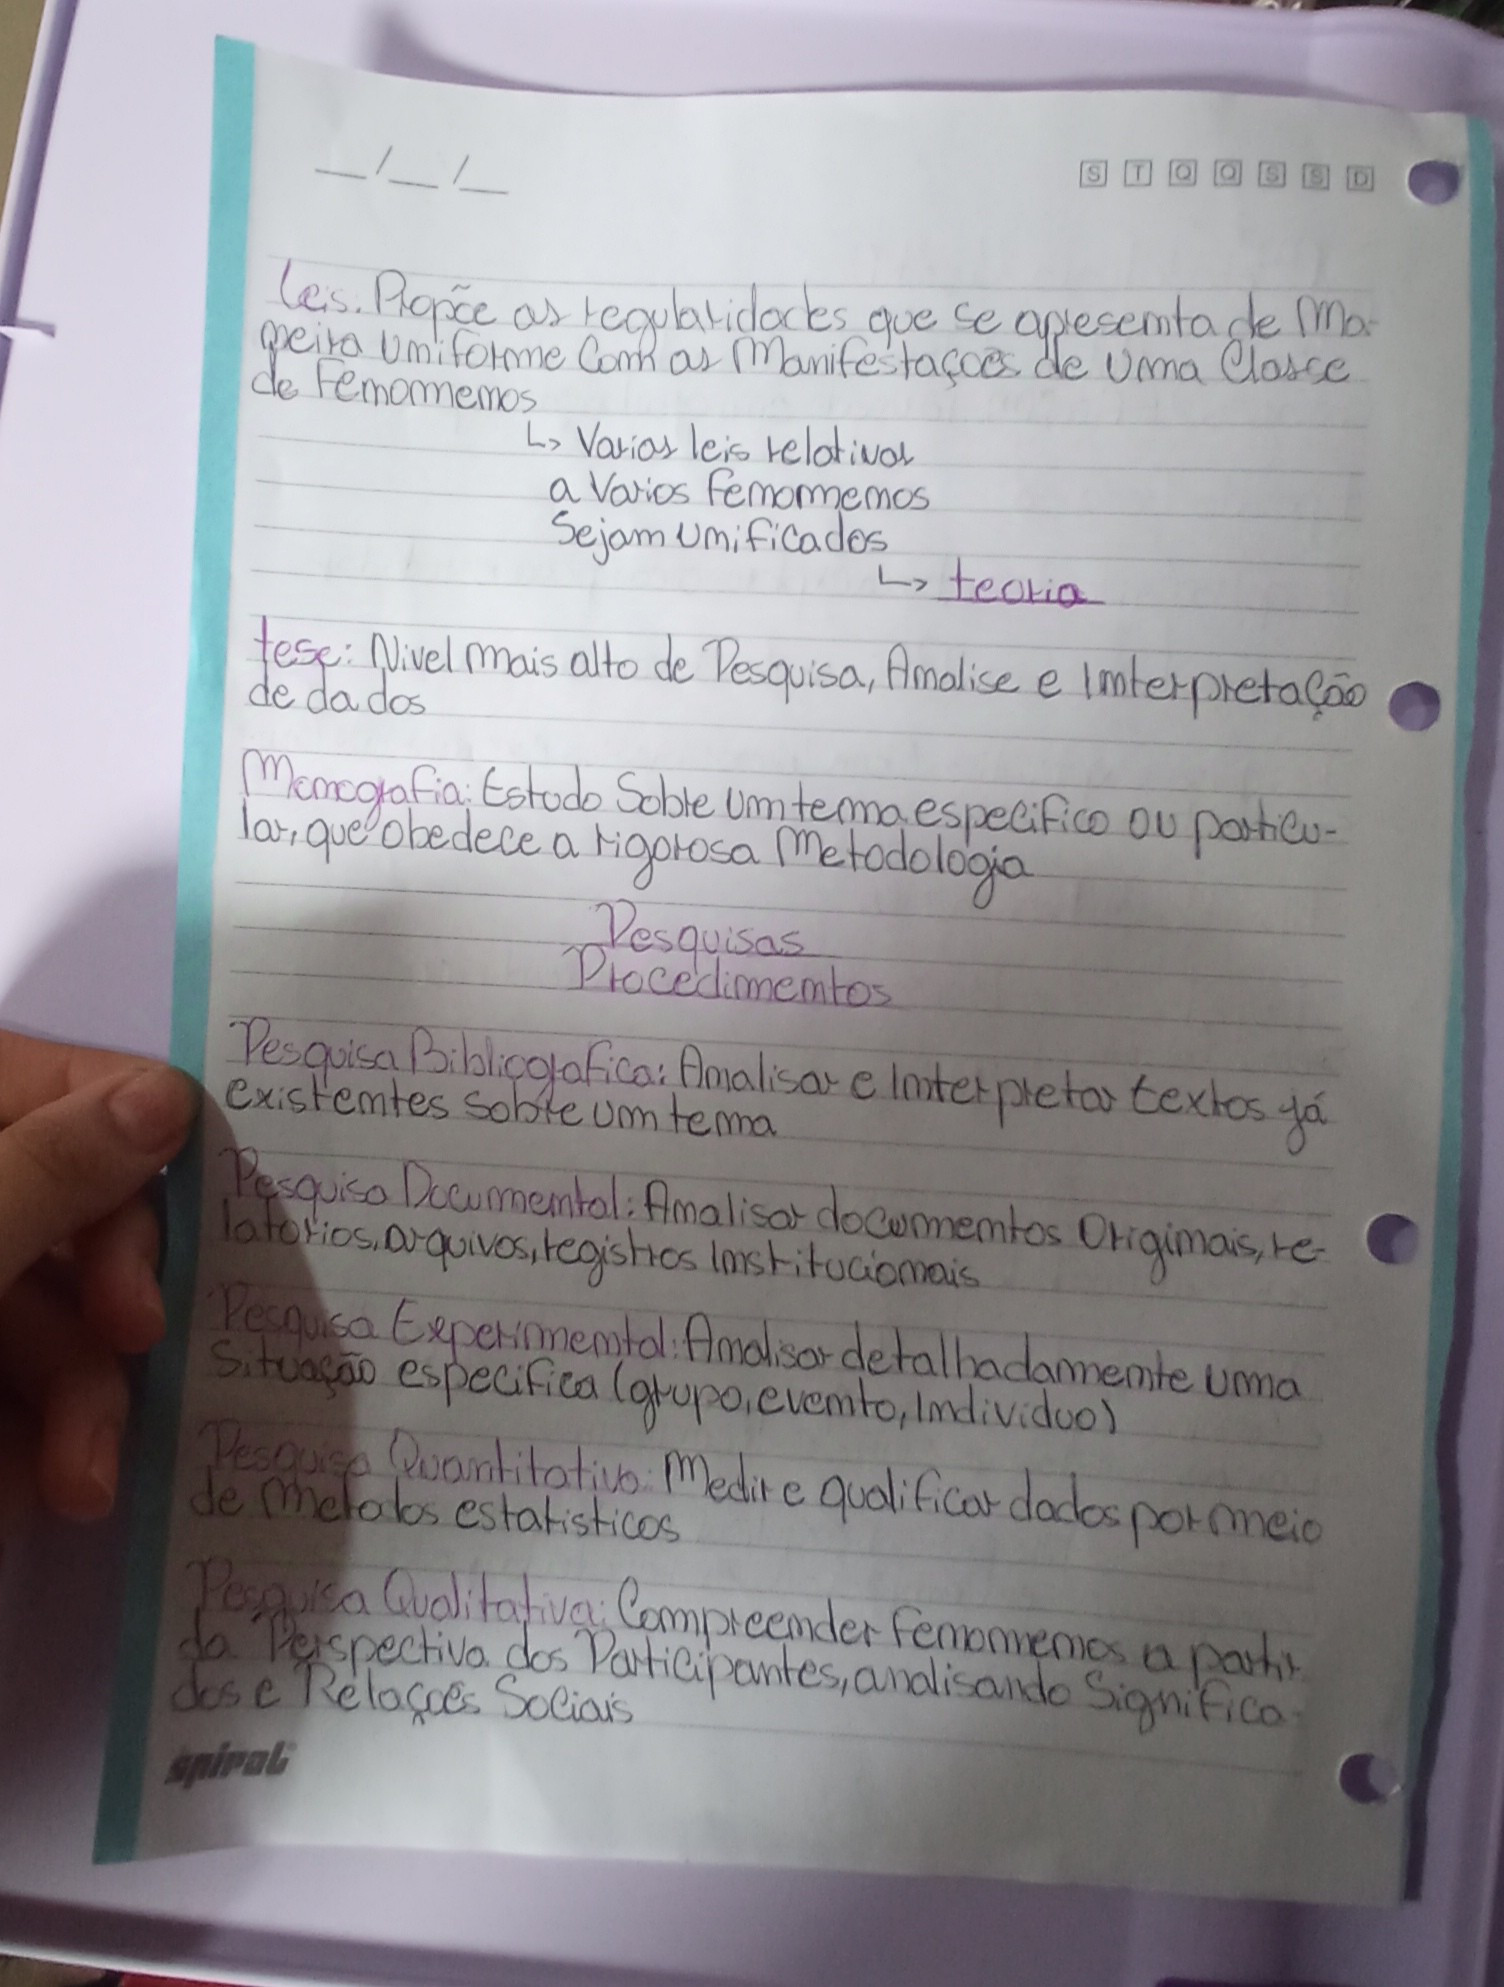 __/__/__
S T Q Q S S D
Leis. Propõe as regularidades que se apresenta de Ma-
neira uniforme Com as Manifestações de uma Classe
de Fenomenos
↳ Varias leis relativas
a Varios Fenomenos
Sejam unificados
↳ teoria
tese: Nivel mais alto de Pesquisa, Analise e Interpretação
de dados
Monografia: Estudo Sobre um tema especifico ou particu-
lar, que obedece a rigorosa Metodologia
Pesquisas
Procedimentos
Pesquisa Bibliografica: Analisar e Interpretar textos já
existentes sobre um tema
Pesquisa Documental: Analisar documentos Originais, re-
latorios, arquivos, registros Institucionais
Pesquisa Experimental: Analisar detalhadamente uma
Situação especifica (grupo, evento, Individuo)
Pesquisa Quantitativa: Medir e qualificar dados por meio
de Metodos estatisticos
Pesquisa Qualitativa: Compreender Fenomenos a partir
da Perspectiva dos Participantes, analisando Significa-
dos e Relações Sociais
spiral